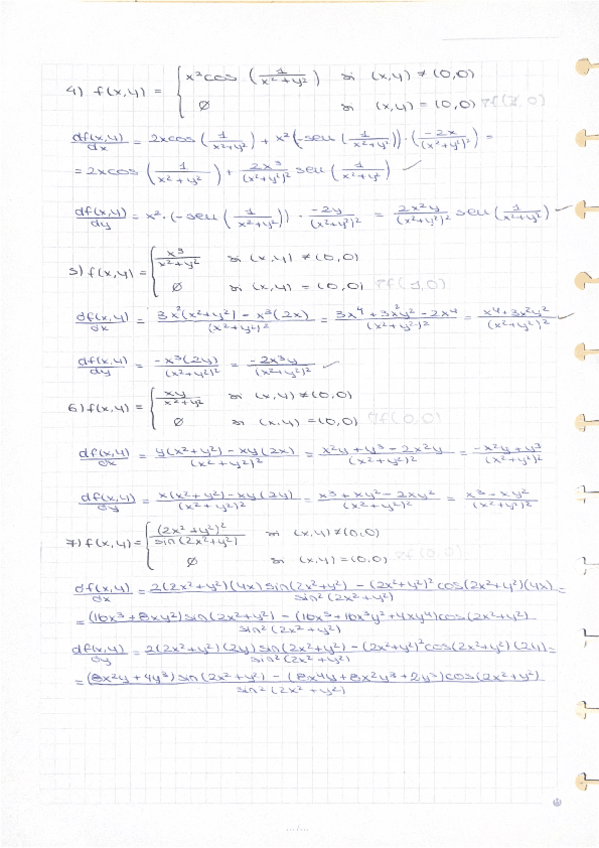 4) f(x,y) = { x² cos (1/(x²+y²)) si (x,y) ≠ (0,0)
∅ si (x,y) = (0,0)
df(x,y)/dx = 2x cos (1/(x²+y²)) + x² (-sen (1/(x²+y²))) · (-2x/(x²+y²)²) =
= 2x cos (1/(x²+y²)) + 2x³/(x²+y²)² sen (1/(x²+y²)) ✓
df(x,y)/dy = x² · (-sen (1/(x²+y²))) · -2y/(x²+y²)² = 2x²y/(x²+y²)² sen (1/(x²+y²)) ✓
5) f(x,y) = { x³/(x²+y²) si (x,y) ≠ (0,0)
∅ si (x,y) = (0,0)
df(x,y)/dx = (3x²(x²+y²) - x³(2x))/(x²+y²)² = (3x⁴ + 3x²y² - 2x⁴)/(x²+y²)² = (x⁴+3x²y²)/(x²+y²)² ✓
df(x,y)/dy = -x³(2y)/(x²+y²)² = -2x³y/(x²+y²)² ✓
6) f(x,y) = { xy/(x²+y²) si (x,y) ≠ (0,0)
∅ si (x,y) = (0,0)
df(x,y)/dx = (y(x²+y²) - xy(2x))/(x²+y²)² = (x²y + y³ - 2x²y)/(x²+y²)² = (-x²y + y³)/(x²+y²)²
df(x,y)/dy = (x(x²+y²) - xy(2y))/(x²+y²)² = (x³ + xy² - 2xy²)/(x²+y²)² = (x³ - xy²)/(x²+y²)²
7) f(x,y) = { (2x²+y²)²/sin(2x²+y²) si (x,y) ≠ (0,0)
∅ si (x,y) = (0,0)
df(x,y)/dx = (2(2x²+y²)(4x) sin(2x²+y²) - (2x²+y²)² cos(2x²+y²)(4x))/sin²(2x²+y²) =
= ((16x³ + 8xy²) sin(2x²+y²) - (16x⁵ + 16x³y² + 4xy⁴) cos(2x²+y²))/sin²(2x²+y²)
df(x,y)/dy = (2(2x²+y²)(2y) sin(2x²+y²) - (2x²+y²)² cos(2x²+y²)(2y))/sin²(2x²+y²) =
= ((8x²y + 4y³) sin(2x²+y²) - (8x⁴y + 8x²y³ + 2y⁵) cos(2x²+y²))/sin²(2x²+y²)